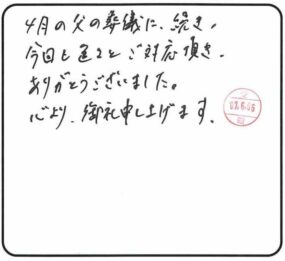 4月の父の葬儀に、続き、
今回も色々とご対応頂き、
ありがとうございました。
心より、御礼申し上げます。
07.6.06